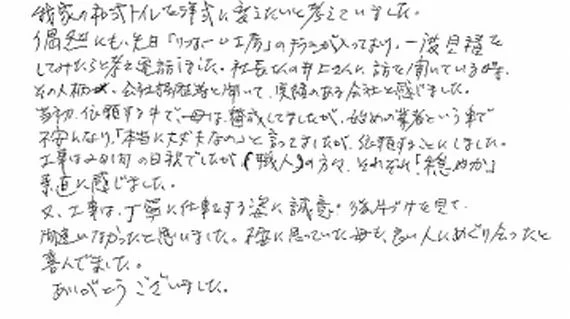 我家の和式トイレを洋式に変えたいと考えていました。
偶然にも、先日「リフォーム工房」のチラシが入っており、一度見積を
してみたらと考え電話しました。社長さんの井上さんに訪を聞いている時、
その人柄、会社経歴等と聞いて、実績のある会社と感じました。
当初、依頼する中で、母は賛成してましたが、始めの業者という事で
不安になり、「本当に大丈夫なの」と言ってましたが、依頼することにしました。
工事は2日間の日程でしたが(職人)の方々、それぞれ「穏やか」
素直に感じました。
又、工事は、丁寧に仕事をする姿に誠意・後片づけを見て
間違いなかったと思いました。不安に思っていた母も、良い人にめぐり会ったと
喜んでました。
ありがとうございました。